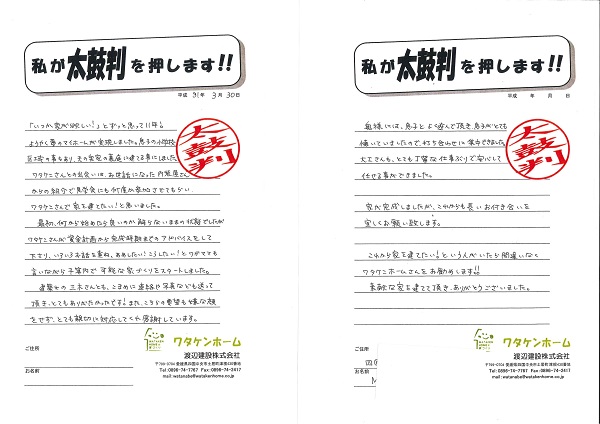 私が太鼓判を押します!!
平成 31年 3月 30日
太鼓判
「いつか家が欲しい！」とずっと思って11年。
ようやく夢のマイホームが実現しました。息子の小学校
区域の事もあり、夫の実家の裏庭に建てる事にしました。
ワタケンさんとの出会いは、お世話になった
からの紹介で見学会にも何度か参加させてもらい
ワタケンさんで家を建てたい！と思いました。
最初、何から始めたら良いのか解らないままの状態でしたが
ワタケンさんが資金計画から完成時期までのアドバイスをして
下さり、いろいろお話を重ね、ああしたい！こうしたい！とワガママも
言いながら予算内で可能な家づくりをスタートしました。
建築士の三木さんとも、こまめに連絡や写真なども送って
頂き、とてもありがたかったです！また、こちらの要望も嫌な顔
をせず、とても親切に対応してくれ感謝しています。
ご住所
お名前
ワタケンホーム
渡辺建設株式会社
Tel:0896-74-7767 Fax:0896-74-2417
mail:watanabe@watakenhome.co.jp
私が太鼓判を押します!!
平成 年 月 日
太鼓判
奥様には、息子とよく遊んで頂き、息子がとても
懐いていましたので、打ち合わせに集中できました。
大工さんも、とても丁寧な仕事ぶりで安心して
任せる事ができました。
家が完成しましたが、これからも長いお付き合いを
宜しくお願い致します。
これから家を建てたい！という人がいたら間違いなく
ワタケンホームさんをお勧めします!!
素敵な家を建てて頂き、ありがとうございました。
ご住所
お名前
ワタケンホーム
渡辺建設株式会社
Tel:0896-74-7767 Fax:0896-74-2417
mail:watanabe@watakenhome.co.jp